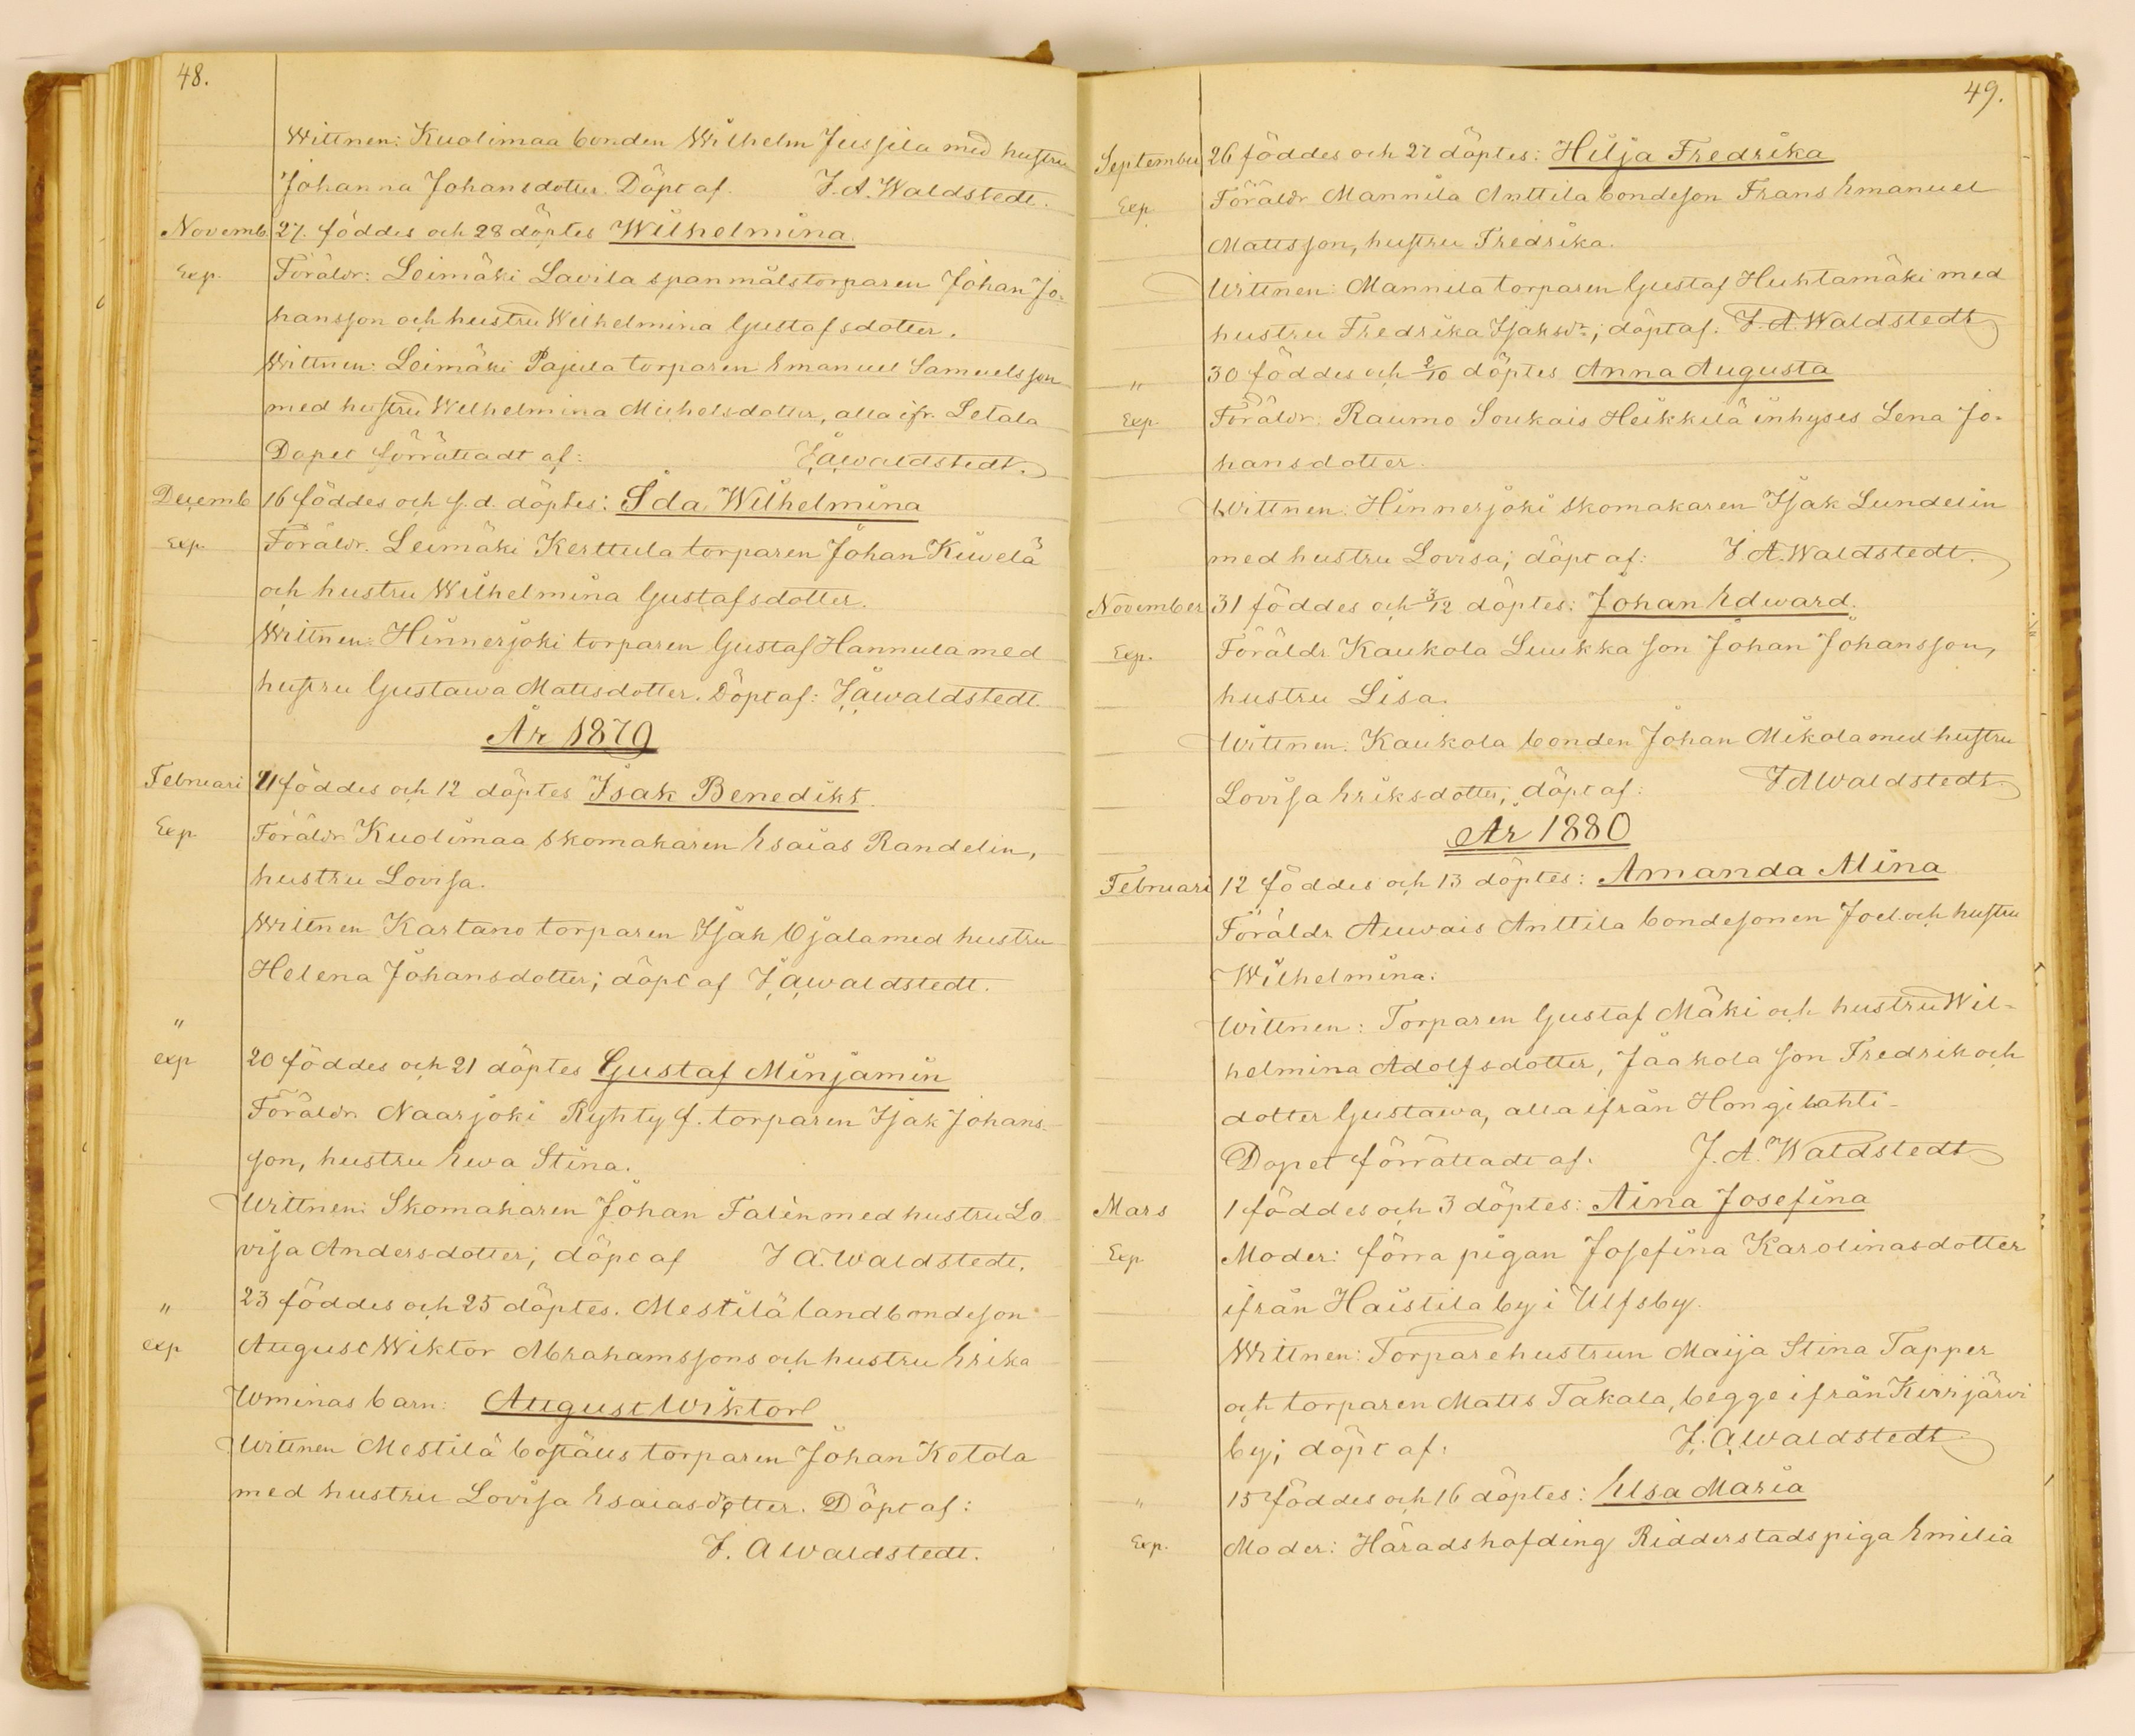 48.
Wittnen: Kuolimaa bonden Wilhelm Jussila med hustru
Johanna Johansdotter. Döpt af. J. A. Waldstedt.
Novemb. 27. föddes och 28 döptes Wilhelmina.
Exp. Föräldr: Leimäki Lavila spanmålstorparen Johan Jo-
hansson och hustru Wilhelmina Gustafsdotter.
Wittnen: Leimäki Pajula torparen Emanuel Samuelsson
med hustru Wilhelmina Michelsdotter, alla ifr. Letala
Dopet förrättadt af: J. A. Waldstedt.
Decemb 16 föddes och s. d. döptes: Ida Wilhelmina
Exp. Föräldr. Leimäki Kerttula torparen Johan Kiwelä
och hustru Wilhelmina Gustafsdotter.
Wittnen: Hinnerjoki torparen Gustaf Hannula med
hustru Gustawa Mattsdotter. Döpt af: J. A. Waldstedt.
År 1879
Februari 11 föddes och 12 döptes Isak Benedikt.
Exp Föräldr Kuolimaa skomakaren Esaias Randelin,
hustru Lovisa.
Wittnen Kartano torparen Isak Ojala med hustru
Helena Johansdotter; döpt af J. A. Waldstedt.
"
exp 20 föddes och 21 döptes Gustaf Minjamin
Föräldr. Naarjoki Ryhty f. torparen Isak Johans-
son, hustru Ewa Stina.
Wittnen: Skomakaren Johan Falèn med hustru Lo
visa Andersdotter; döpt af J A. Waldstedt.
" 23 föddes och 25 döptes. Mestilä landbondeson
exp August Wiktor Abrahamssons och hustru Erika
Wminas barn: August Wiktor
Wittnen Mestilä boställs torparen Johan Ketola
med hustru Lovisa Esaiasdotter. Döpt af:
J. A Waldstedt.
49.
September 26 föddes och 27 döptes: Hilja Fredrika
Exp. Föräldr Mannila Anttila bondeson Frans Emanuel
Mattsson, hustru Fredrika.
Wittnen: Mannila torparen Gustaf Huhtamäki med
hustru Fredrika Isaksdr; döpt af. J. A. Waldstedt
" 30 föddes och 2/10 döptes Anna Augusta
Exp. Föräldr. Raumo Soukais Heikkilä inhyses Lena Jo-
hansdotter.
Wittnen: Hinnerjoki skomakaren Isak Lundelin
med hustru Lovisa; döpt af: J. A. Waldstedt.
November 31 föddes och 3/12 döptes: Johan Edward.
Exp. Föräldr Kaukola Luukka son Johan Johansson,
hustru Lisa.
Wittnen. Kaukola bonden Johan Mikola med hustru
Lovisa Eriksdotter, döpt af: J A Waldstedt
År 1880
Februari 12 föddes och 13 döptes: Amanda Alina
Föräldr Auvais Anttila bondesonen Joel och hustru
Wilhelmina.
Wittnen: Torparen Gustaf Mäki och hustru Wil-
helmina Adolfsdotter, Jaakola son Fredrik och
dotter Gustawa, alla ifrån Hongilahti-
Dopet förrättadt af. J. A. Waldstedt
Mars 1 föddes och 3 döptes: Aina Josefina
Exp. Moder: förra pigan Josefina Karolinasdotter
ifrån Haistila by i Ulfsby.
Wittnen: Torparehustrun Maija Stina Tapper
och torparen Matts Takala, begge ifrån Kirrijärvi
by; döpt af: J. A. Waldstedt
" 15 föddes och 16 döptes: Elsa Maria
Exp. Moder: Häradshöfding Ridderstads piga Emilia